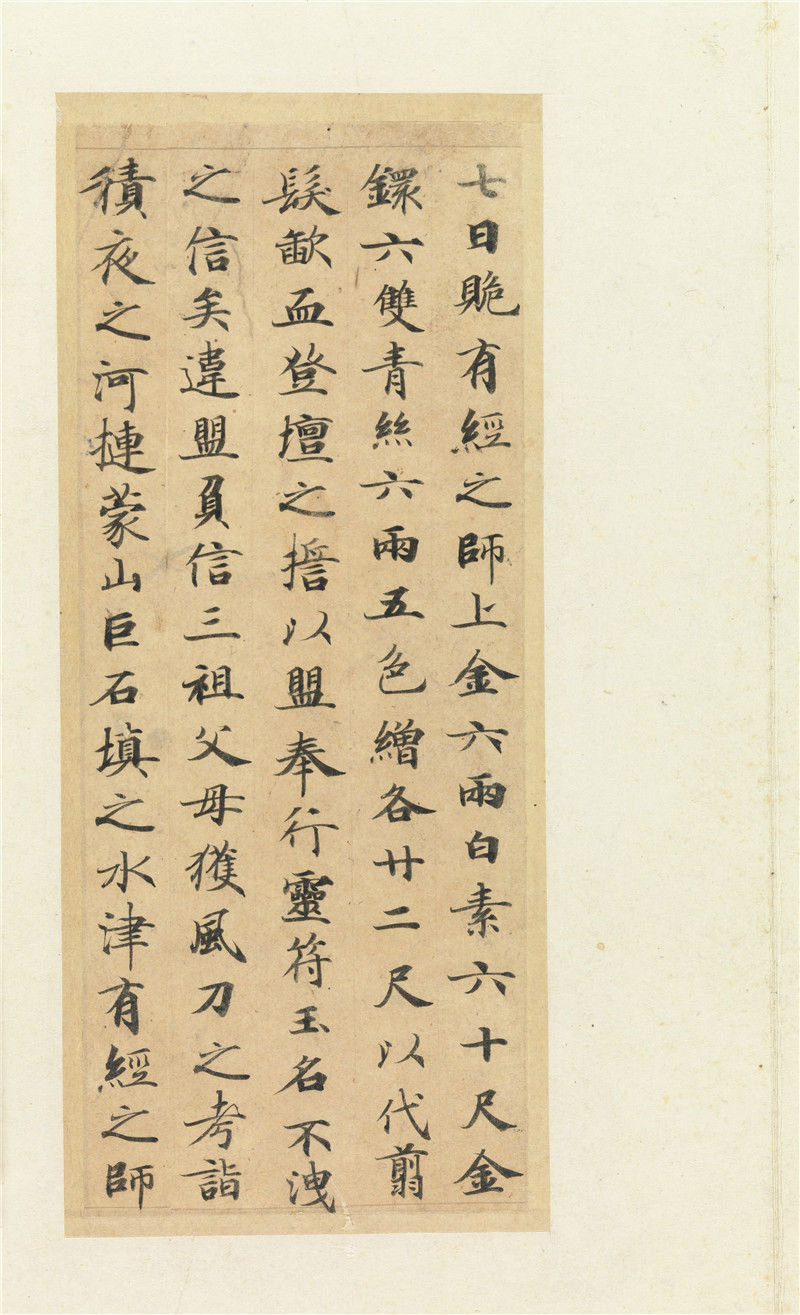 七日賝有經之師上金六兩白素六十尺金
鐶六雙青絲六兩五色繒各廿二尺以代翦
髮歃血登壇之誓以盟奉行靈符玉名不洩
之信矣違盟負信三祖父母獲風刀之考詣
積夜之河摙蒙山巨石填之水津有經之師